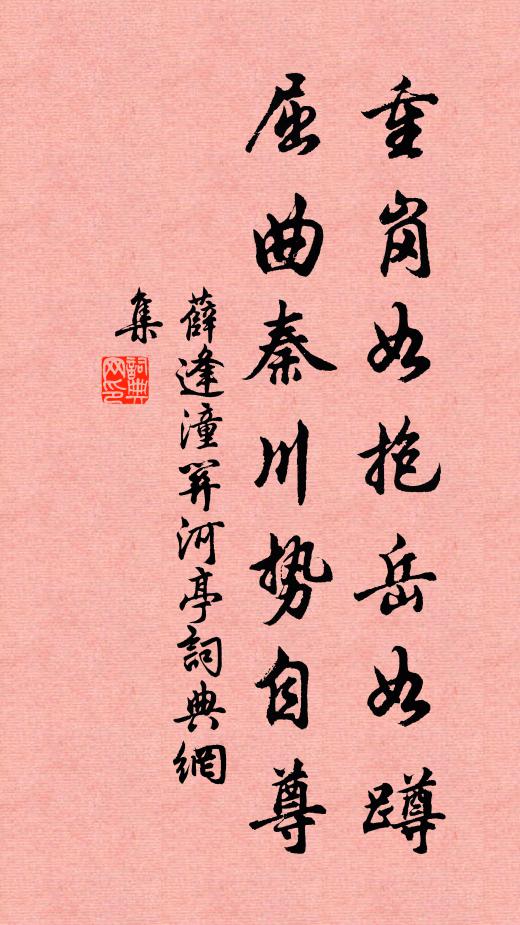 重岗如抱岳如蹲
屈曲秦川势自尊
薛逢潼关河亭詞典網
集
詞典网印